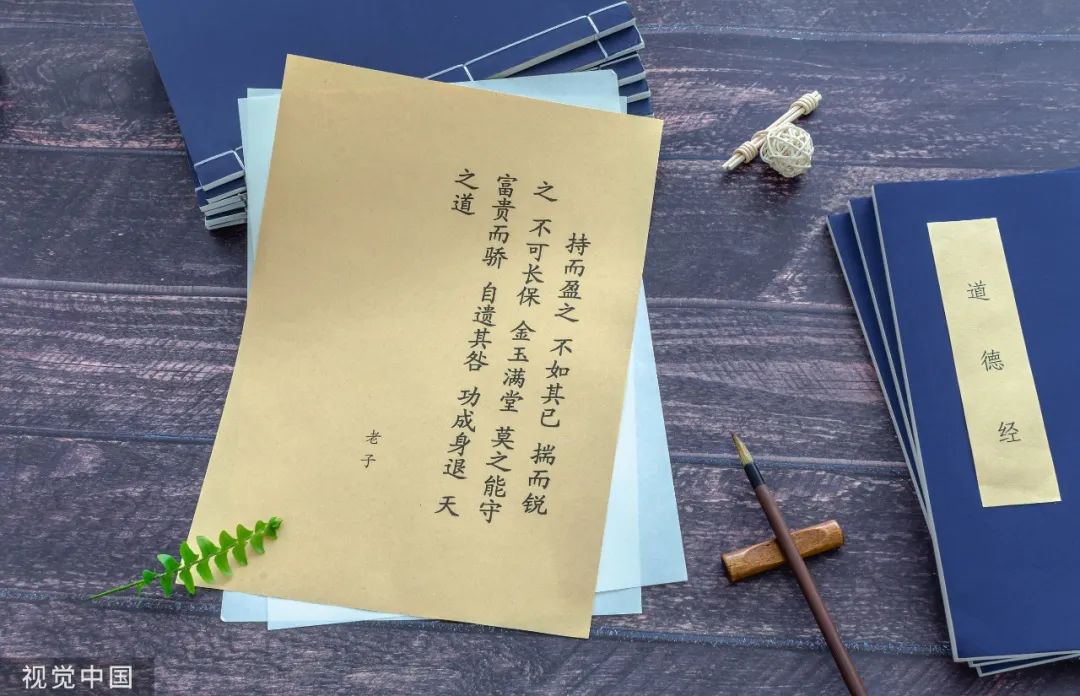 持而盈之 不如其已 揣而锐
之 不可长保 金玉满堂 莫之能守
富贵而骄 自遗其咎 功成身退 天
之道
老子
道德经
视觉中国